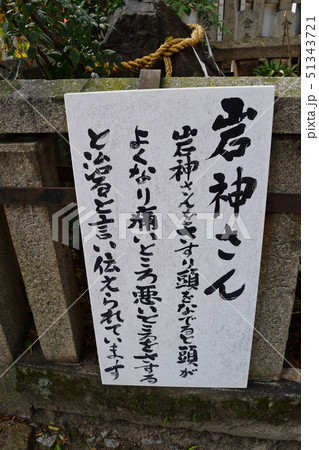 岩神さん
岩神さんをさすり頭をなでると頭が
よくなり痛いところ悪いところをさする
と治ると言い伝えられています
PIXTA
pixta.jp - 51343721